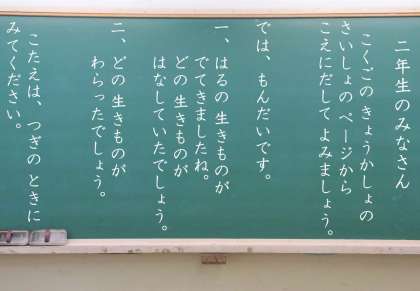 二年生のみなさん
こくごの きょうかしょの
さいしょの ページから
こえにだして よみましょう。
では、もんだいです。
一、はるの 生きものが
でてきましたね。
どの 生きものが
はなしていたでしょう。
二、どの 生きものが
わらったでしょう。
こたえは、つぎの ときに
みてください。